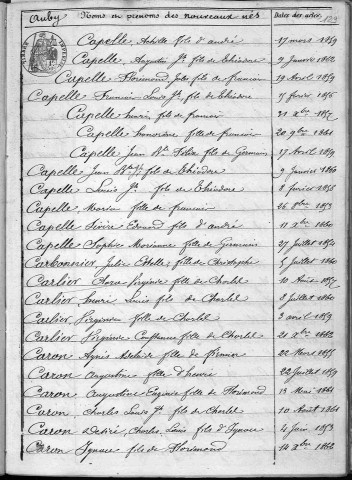 Auby Noms et prénoms des nouveaux nés Dates des actes 129
Capelle Achille fils d'andré 17 mars 1859
Capelle Augustin Jh fils de Théodore 9 Janvier 1862
Capelle Florimond Jules fils de francois 19 Avril 1859
Capelle francois Louis Jh fils de Théodore 15 février 1856
Capelle fils de francois 31 Xbre 1857
Capelle honorine fille de francois 20 9bre 1861
Capelle Jean Bte Félix fils de Germain 17 Avril 1859
Capelle Jean Bte Jh fils de Théodore 9 Janvier 1860
Capelle Louis Jh fils de Théodore 8 février 1858
Capelle Maria fille de francois 26 8bre 1853
Capelle Edmond fils d'andré 11 Xbre 1860
Capelle Sophie Marianne fille de Germain 27 Juillet 1854
Carbonnier Julie fille de Christophe 5 Juillet 1860
Carlier Flora Virginie fille de Charles 10 Août 1857
Carlier Louis fils de Charles 8 Juillet 1860
Carlier Virginie fille de Charles 3 avril 1859
Carlier Virginie Constance fille de Charles 21 Xbre 1862
Caron Agnès Adelaide fille de 22 Mars 1855
Caron Augustine fille d'henri 22 Juillet 1859
Caron Augustine Eugénie fille de Florimond 13 Mai 1861
Caron Charles Louis Jh fils de Charles 10 Août 1861
Caron Désiré Charles Louis fils d'Ignace 4 Juin 1853
Caron Ignace fils de Florimond 14 Xbre 1862